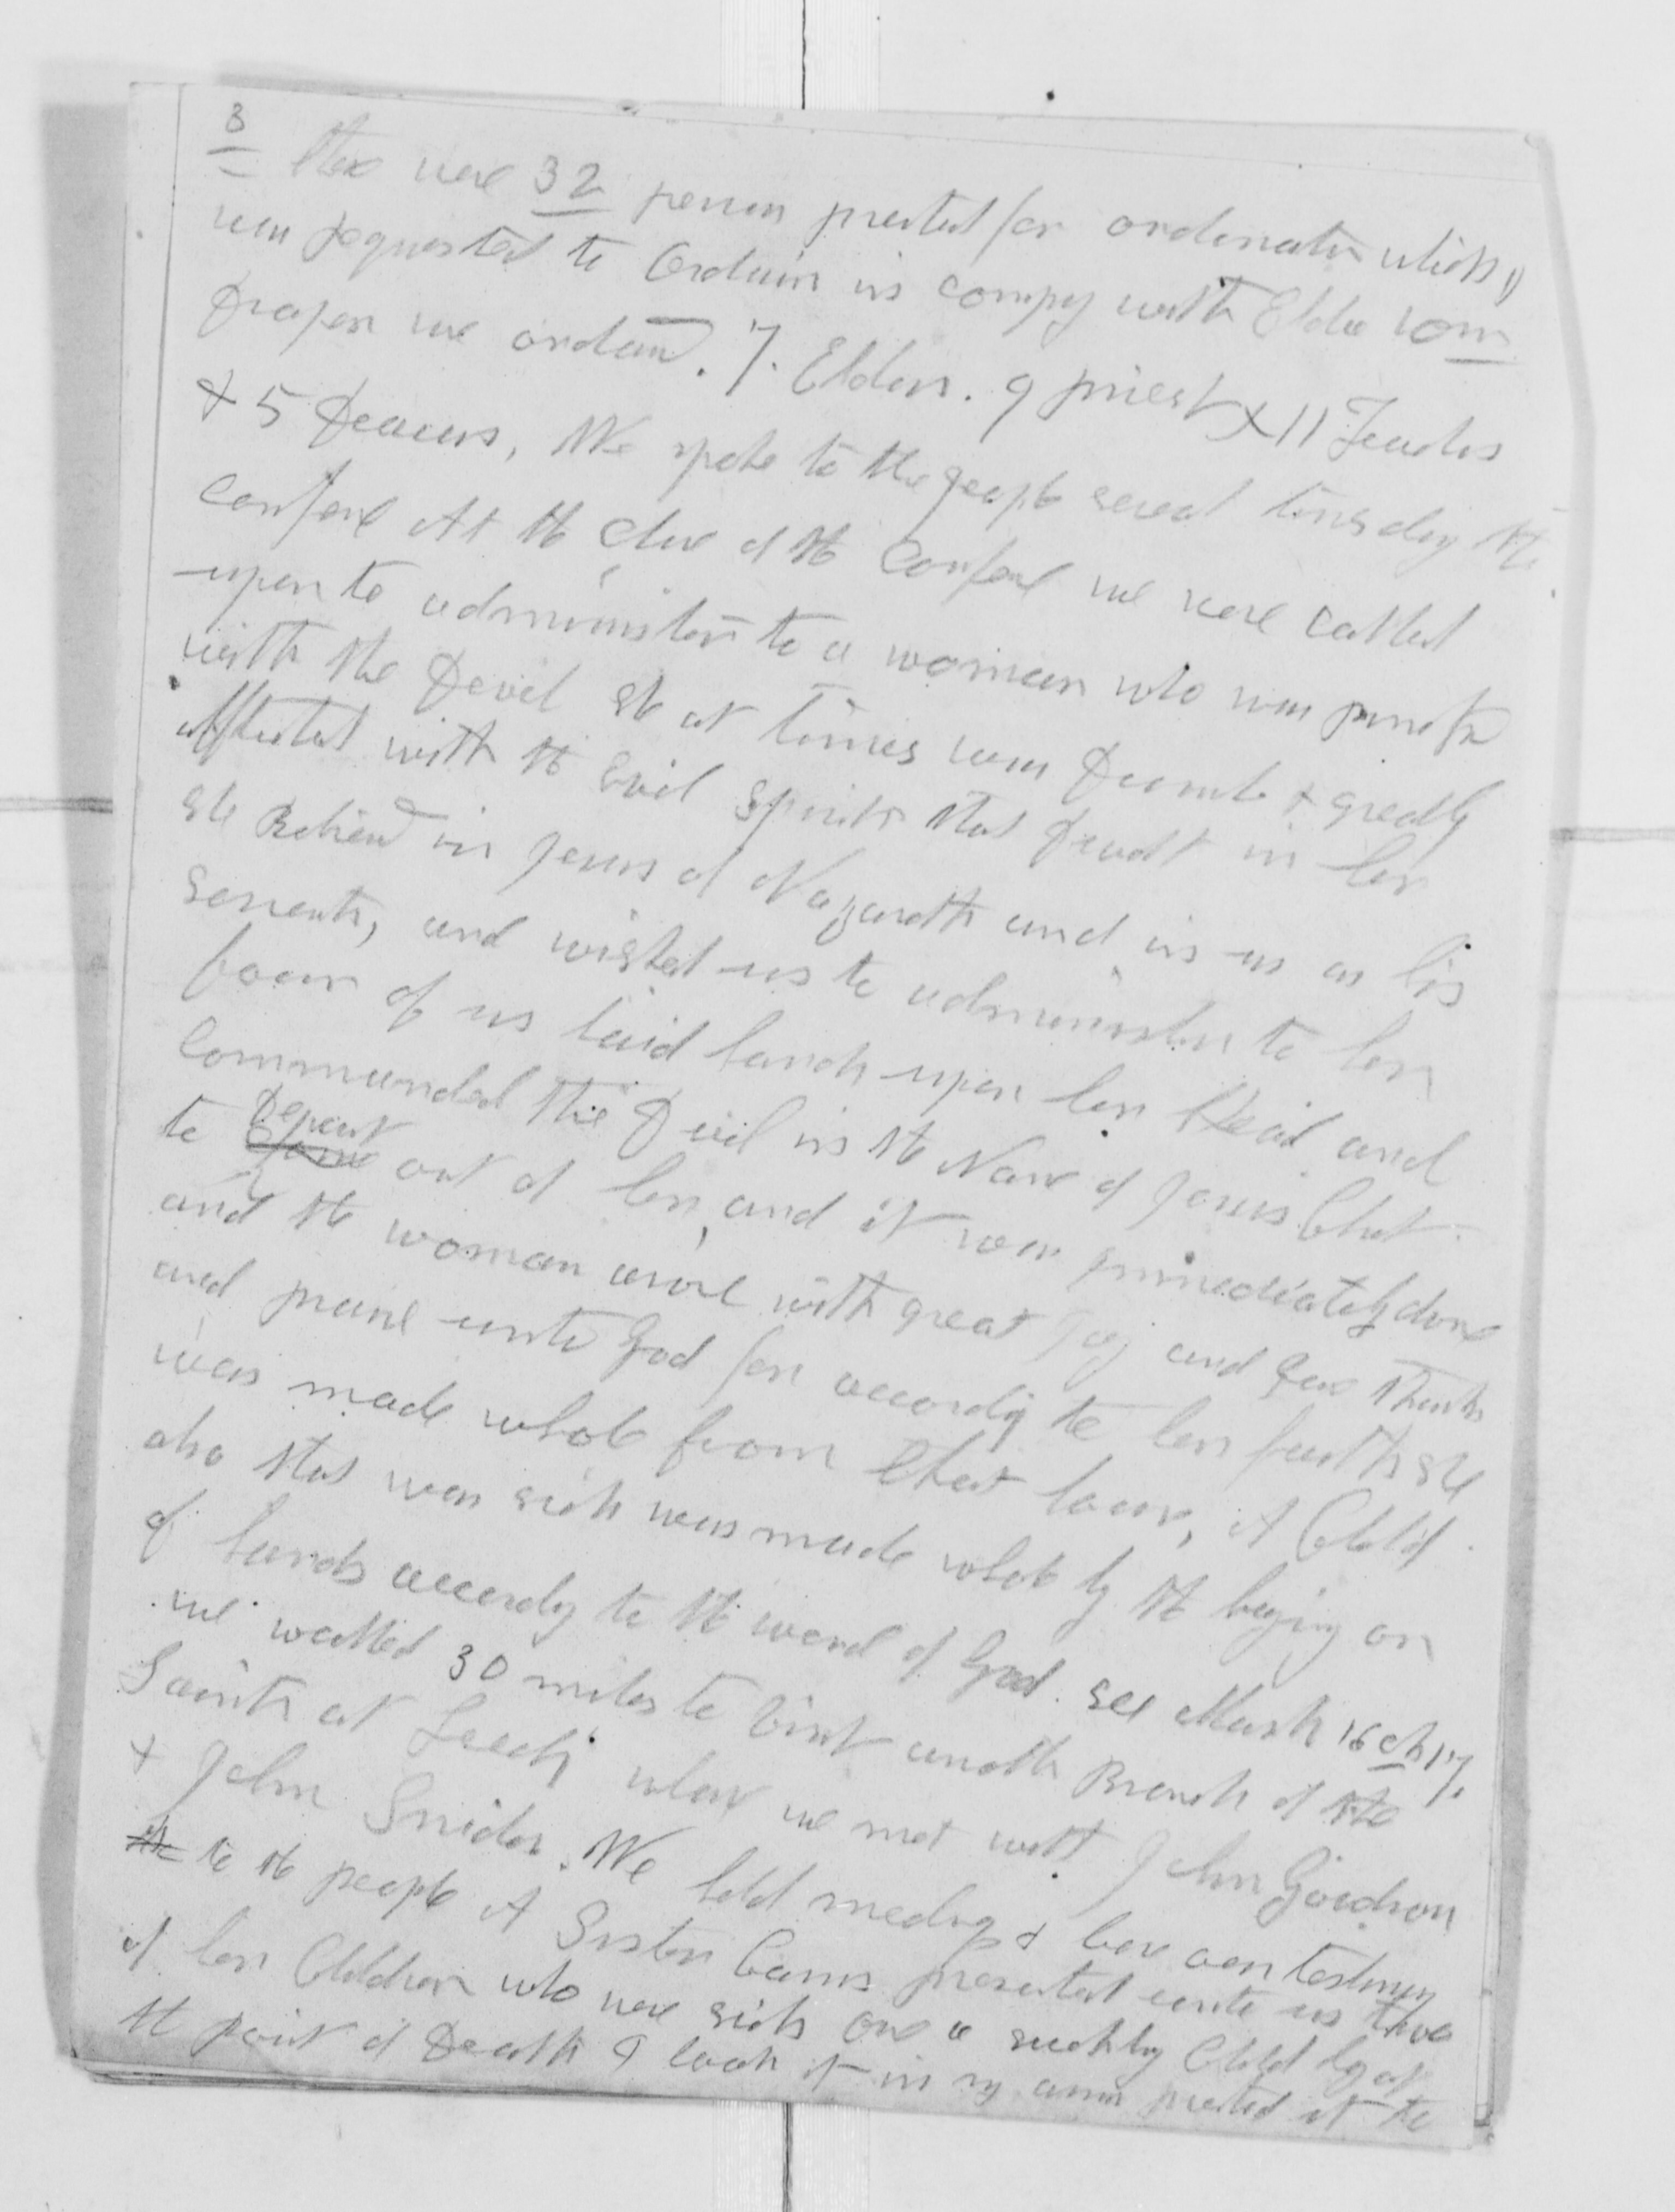 3
ther were 32 person prested for ordination which I
was requested to Ordain in compy with Elder
Draper we ordaind. 7. Elders. 9 priest & 11 Teachers
& 5 Deacons, We spoke to the people several times duing the
Confere At the close of the Confere we were called
upon to administer to a woman who was possess
with the Devel she at times was Dumb & greatly
afflicted with the evil spirits that Dwelt in her
she Believd in Jesus of Nazareth and in us as his
servents, and wished us to administer to her
four of us laid hands upon her Head and
Commanded the Devil in the Name of Jesus Christ
to Come Depart out of her, and it was immediately done
and the woman arose with great Joy and gave thanks
and praise unto God for accordig to her faith she
was made whole from that hour, A Child
also that was sick was made whole by the laying on
of hands accordig to the word of God. see Mark 16 ch 17.
we walked 30 miles to visit another Branch of the
Saints at Leeds whare we met with John Goodson
& John Snider. We held meeting & bore our testimony
to the people A Sister Carns presented unto us three
of her Children who were sick one a suckling Child ly at
the point of Death I took it in my arms presented it to